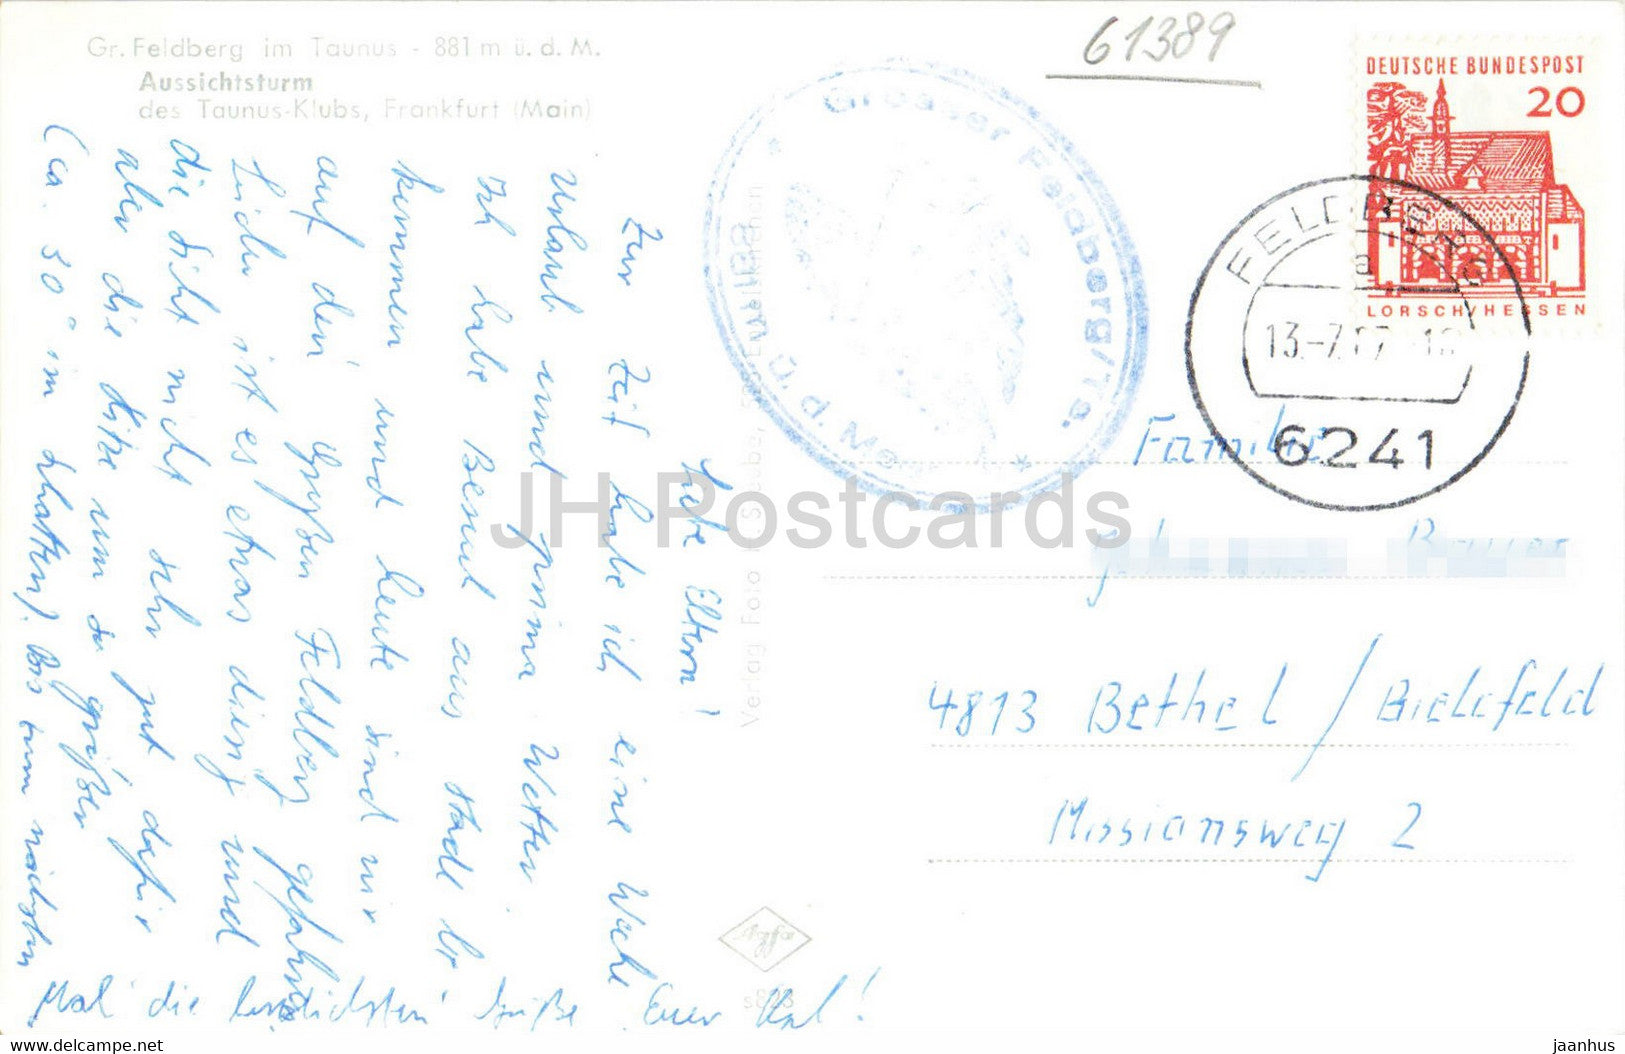 Gr. Feldberg im Taunus - 881 m ü. d. M.
Aussichtsturm
des Taunus-Klubs, Frankfurt (Main)
61389
DEUTSCHE BUNDESPOST
20
LORSCH/HESSEN
FELDBERG
a
13.-7.67
6241
Grosser Feldberg/Ts.
881 m ü. d. Meer
Verlag Foto
Agfa
s828
Liebe Eltern!
Zur Zeit habe ich eine Woche
Urlaub und prima Wetter.
Ich habe Besuch aus
kommen und heute sind wir
auf den großen Feldberg gefahren
Leider ist es etwas diesig und
die Sicht nicht sehr gut dafür
aber die Hitze um so größer
(ca. 30° im Schatten). Bis zum nächsten
Mal die herzlichsten Grüße Euer
Familie
4813 Bethel / Bielefeld
Missionsweg 2
JH Postcards
www.delcampe.net
jaanhus